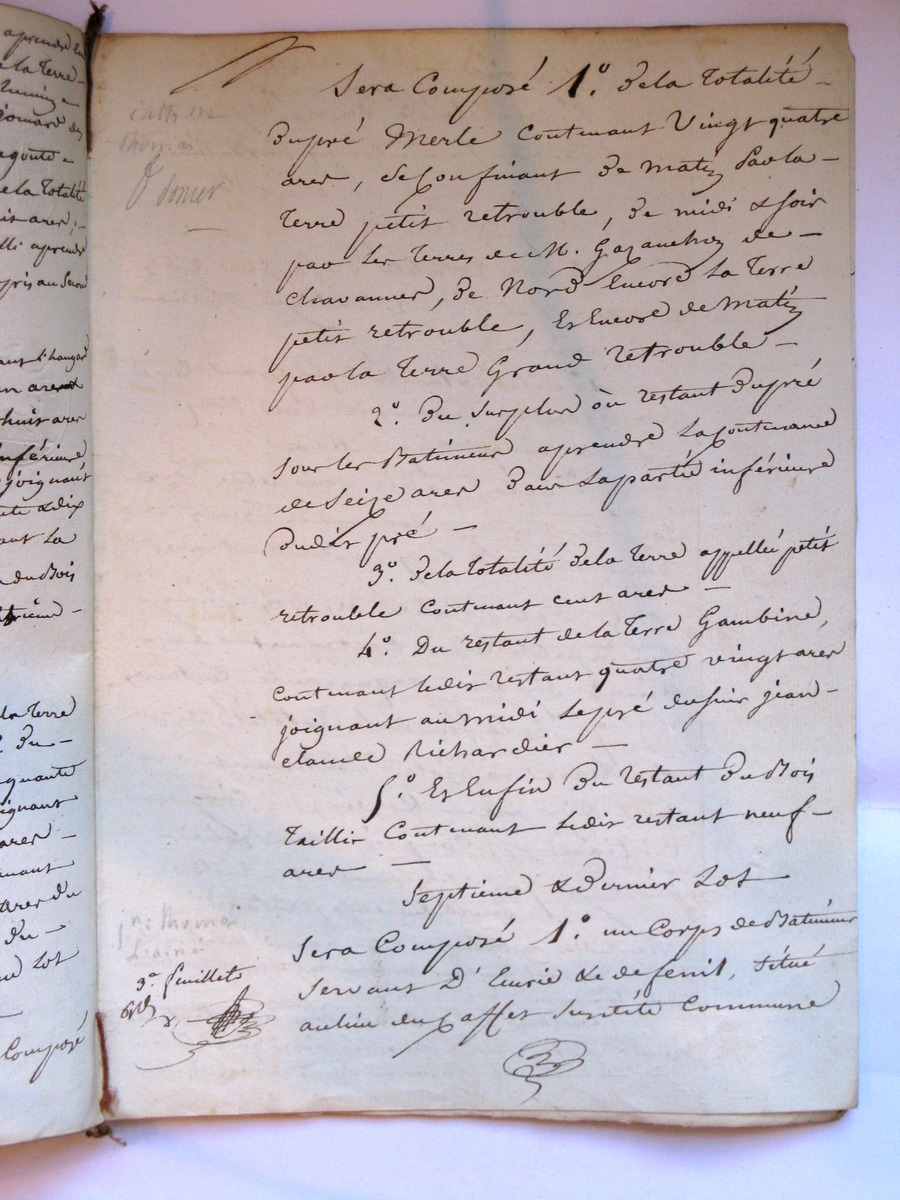 Sera Composé 1º. De la Totalité
Du pré Merle Contenant Vingt quatre
ares, Se Confinant De matin Par la
Terre petit retrouble, De midi & soir
par les Terres de M. Gazanchon de
chavannes, De Nord Encore La Terre
petit retrouble, Et Encore de Matin
par la Terre Grand Retrouble
2º. Du Surplus ou restant Du pré
Sous les Batiments a prendre La Contenance
de Seize ares Dans La partie inférieure
Dudit pré
3º. De la Totalité De la Terre appellée petit
retrouble Contenant Cent ares
4º. Du restant de la Terre Gambine,
Contenant ledit restant quatre vingt ares
joignant au midi Le pré du sieur jean
claude Richardier
5º. Et Enfin Du restant Du Bois
Taillis Contenant ledit restant neuf
ares
Septieme & Dernier Lot
Sera Composé 1º. un Corps de Batiments
Servant D'Ecurie & de fenil, Situé
au lieu du Caffet Susdite Commune
Thomas
jn. Thomas
L'ainé
3e. feuillet
a prendre
de la Terre
De la Totalité
a prendre
huit ares
inférieure
joignant
& dix
ant La
du Bois
de la Terre
Du
ignant
ares
ares du
du
Lot
Composé